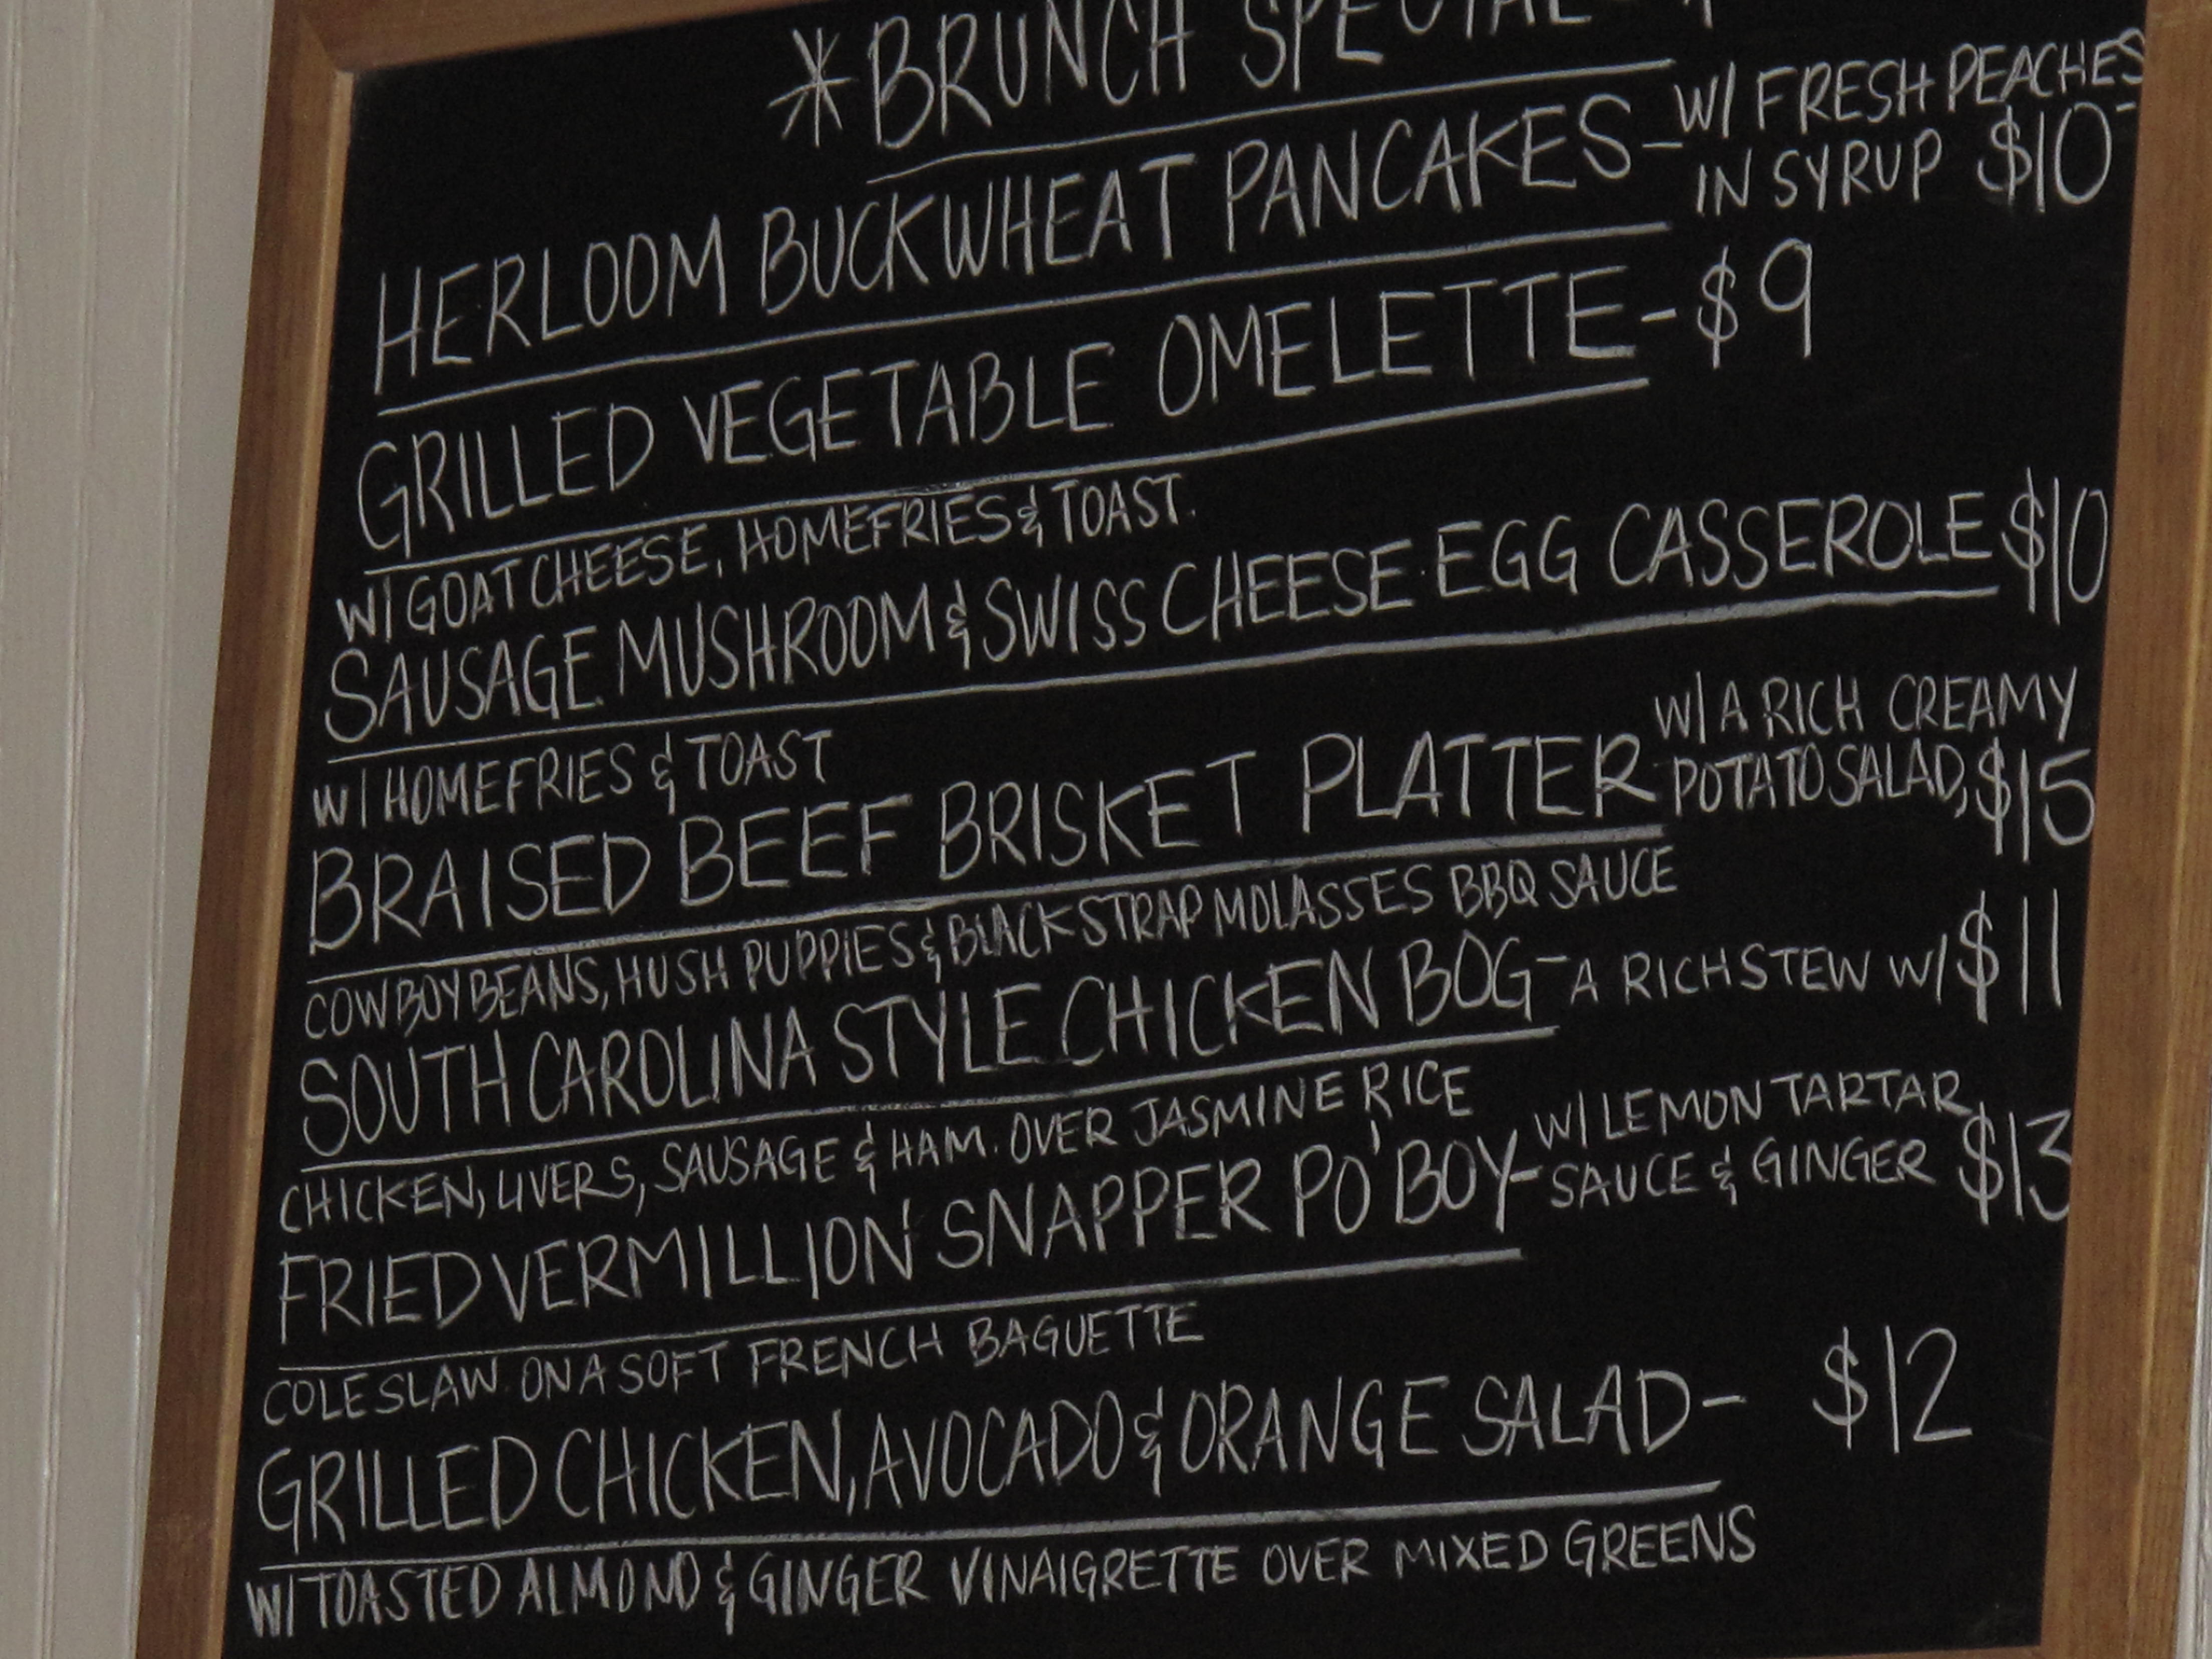 *BRUNCH SPECIAL
HERLOOM BUCKWHEAT PANCAKES - W/ FRESH PEACHES
IN SYRUP $10-
GRILLED VEGETABLE OMELETTE - $9
W/ GOAT CHEESE, HOMEFRIES & TOAST.
SAUSAGE MUSHROOM & SWISS CHEESE EGG CASSEROLE $10
W/ HOMEFRIES & TOAST
BRAISED BEEF BRISKET PLATTER W/ A RICH CREAMY
POTATO SALAD, $15
COWBOY BEANS, HUSH PUPPIES & BLACKSTRAP MOLASSES BBQ SAUCE
SOUTH CAROLINA STYLE CHICKEN BOG - A RICH STEW W/ $11
CHICKEN, LIVERS, SAUSAGE & HAM. OVER JASMINE RICE
FRIED VERMILLION SNAPPER PO'BOY - W/ LEMON TARTAR
SAUCE & GINGER $13
COLESLAW. ON A SOFT FRENCH BAGUETTE
GRILLED CHICKEN, AVOCADO & ORANGE SALAD - $12
W/ TOASTED ALMOND & GINGER VINAIGRETTE OVER MIXED GREENS